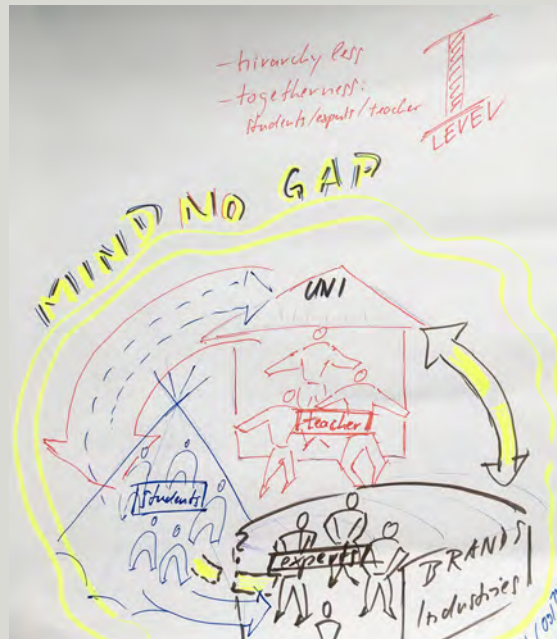 - hirarchy less
- togetherness:
students/experts/teacher
I
LEVEL
MIND NO GAP
UNI
teacher
students
experts
BRANDS
Industries